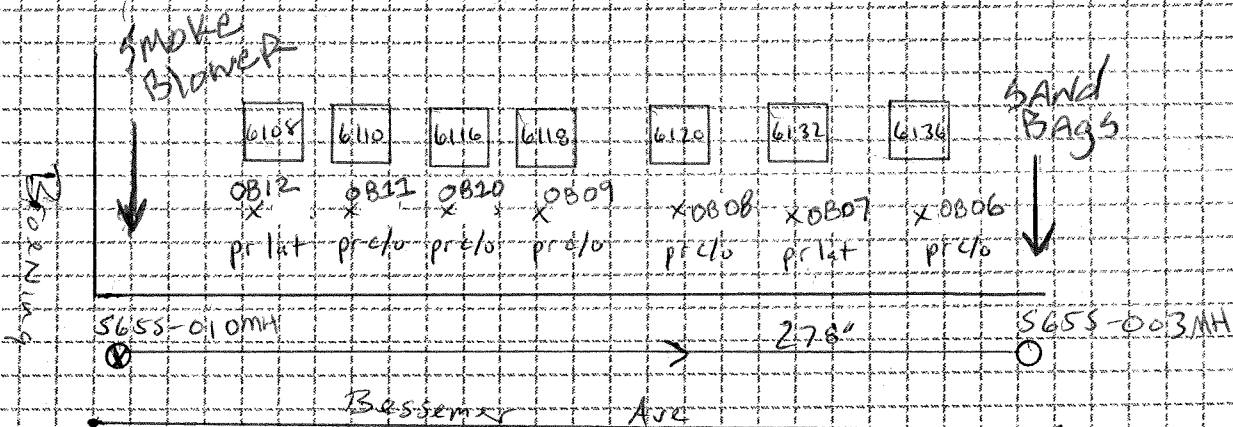 SMOKE
Blower
SANd
BAgs
6108 6110 6116 6118 6120 6132 6136
OB12 OB11 OB10 OB09 OB08 OB07 OB06
pr lat pr c/o pr c/o pr c/o pr c/o pr lat pr c/o
S65S-010MH S65S-003MH
278"
Bessemer Ave